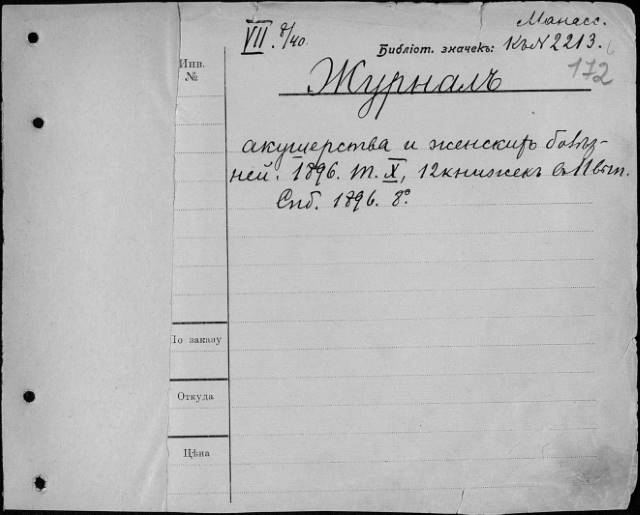 Манасс.
VII. 8/40. Библіот. значекъ: Къ№2213.
172
Инв.
№
Журналъ
акушерства и женскихъ болѣз-
ней. 1896. Т. X, 12 книжекъ въ 11 вып.
Спб. 1896. 8°.
По заказу
Откуда
Цѣна